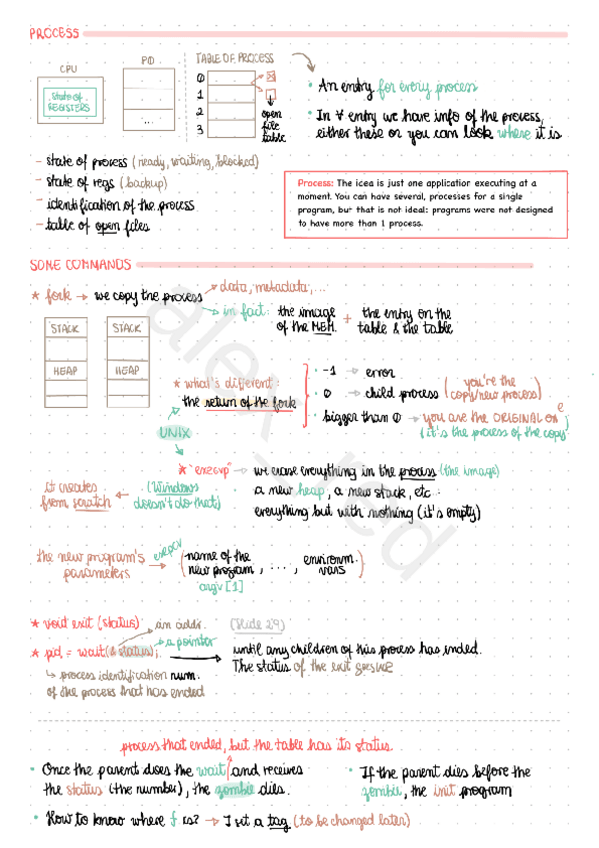 PROCESS
CPU
state of
REGISTERS
P0
...
TABLE OF PROCESS
0
1
2
3
open
file
table
• An entry for every process
• In ∀ entry we have info of the process,
either these or you can look where it is
- state of process (ready, waiting, blocked)
- state of regs (backup)
- identification of the process
- table of open files
Process: The icea is just one applicatior executing at a
moment. You can have several, processes for a single
program, but that is not ideal: programs were not designed
to have more than 1 process.
SOME COMMANDS
* fork → we copy the process
→ data, metadata, ...
→ in fact: the image
of the MEM. + the entry on the
table & the table
STACK
HEAP
STACK
HEAP
* what's different:
the return of the fork
• -1 → error
• 0 → child process (you're the
copy/new process)
• bigger than 0 → you are the ORIGINAL one
(it's the process of the copy)
UNIX
* "execvp" → we erase everything in the process (the image)
a new heap, a new stack, etc
everything but with nothing (it's empty)
(Windows
doesn't do that)
→ it creates
from scratch
the new program's
parameters
(name of the
new program, ..., environm.
vars)
argv [1]
* void exit (status)
→ an addr.
(Slide 29)
* pid = wait(& status);
→ a pointer
→ until any children of this process has ended.
The status of the exit
↳ process identification num.
of the process that has ended
process that ended, but the table has its status
• Once the parent does the wait and receives
the status (the number), the zombie dies.
• If the parent dies before the
zombie, the init program
• How to know where f is? → I put a tag (to be changed later)
alex_red